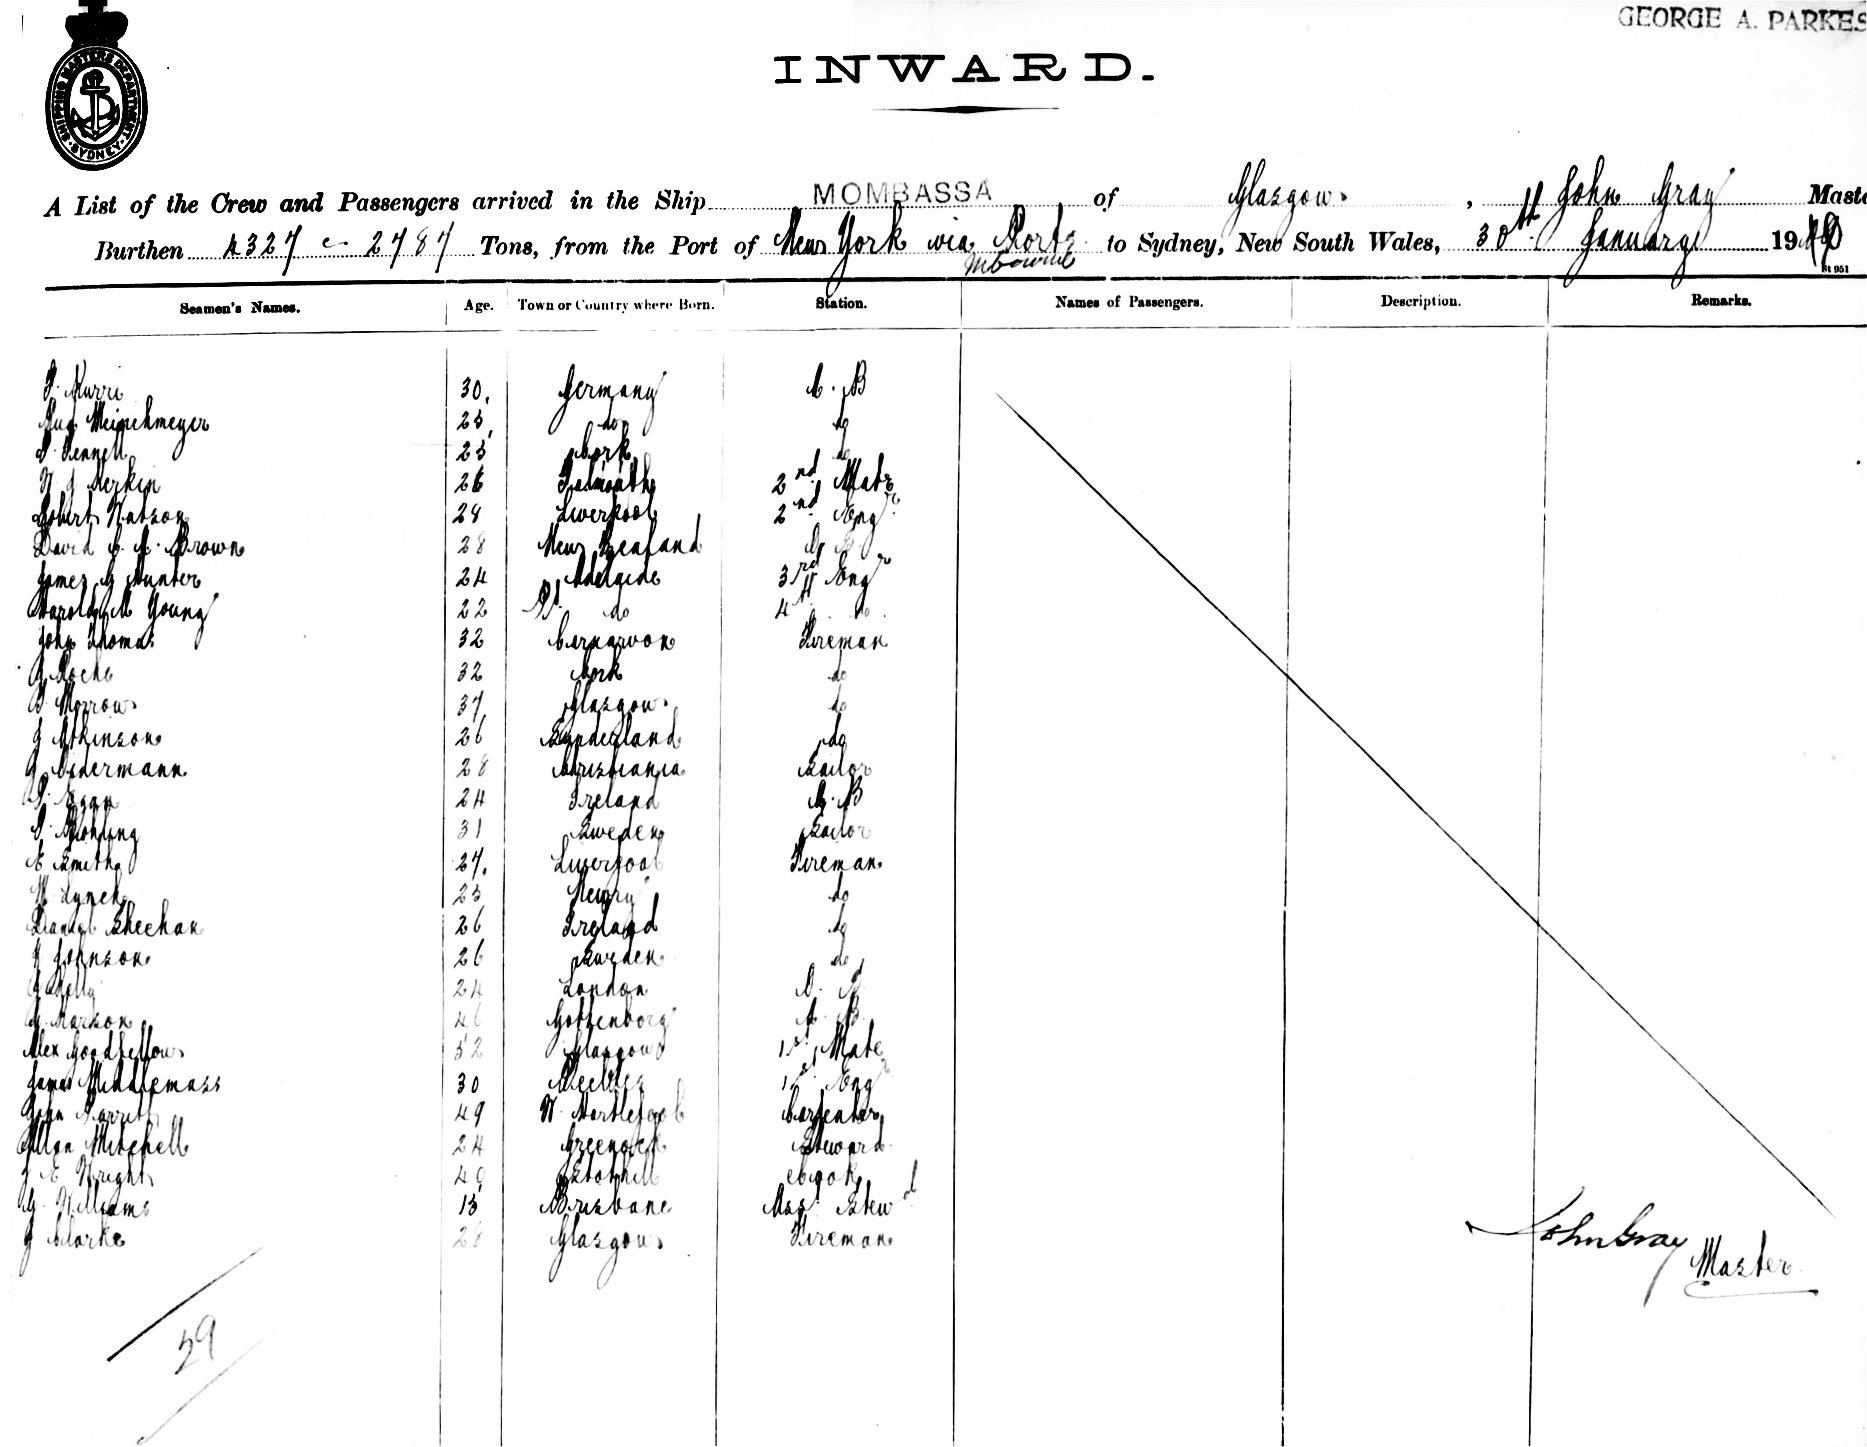 GEORGE A. PARKES
SHIPPING MASTERS DEPARTMENT SYDNEY
INWARD.
A List of the Crew and Passengers arrived in the Ship MOMBASSA of Glasgow, John Gray Maste
Burthen 4327 - 2787 Tons, from the Port of New York via Ports to Sydney, New South Wales, 30th January 19
Seamen's Names. Age. Town or Country where Born. Station. Names of Passengers. Description. Remarks.
30. Germany A. B
Aug Meinchmeyer 25 do do
25 Cork do
26 Falmouth 2nd Mate
Robert Watson 28 Liverpool 2nd Engr
David Brown 28 New Zealand
James G Hunter 24 Adelaide 3rd Engr
Harold M Young 22 Pt. do 4th do
John Thomas 32 Carnarvon Fireman
J Roche 32 Cork do
Morrow 37 Glasgow do
J Atkinson 26 Sunderland do
28 Christiania Sailor
Egan 24 Ireland A. B
31 Sweden Sailor
E Smith 27. Liverpool Fireman
Lynch 25 Newry do
Daniel Sheehan 26 Ireland do
Johnson 26 do
Kelly 24 London
46 Gottenborg A. B.
Alex Goodfellow 52 Glasgow 1st Mate
James Middlemass 30 1st Engr
John 49 W. Hartlepool Carpenter
Allan Mitchell 24 Greenock Steward
J E Wright Cook
G. Williams Brisbane Ass. Stewd
J Clarke 28 Glasgow Fireman
John Gray
Master